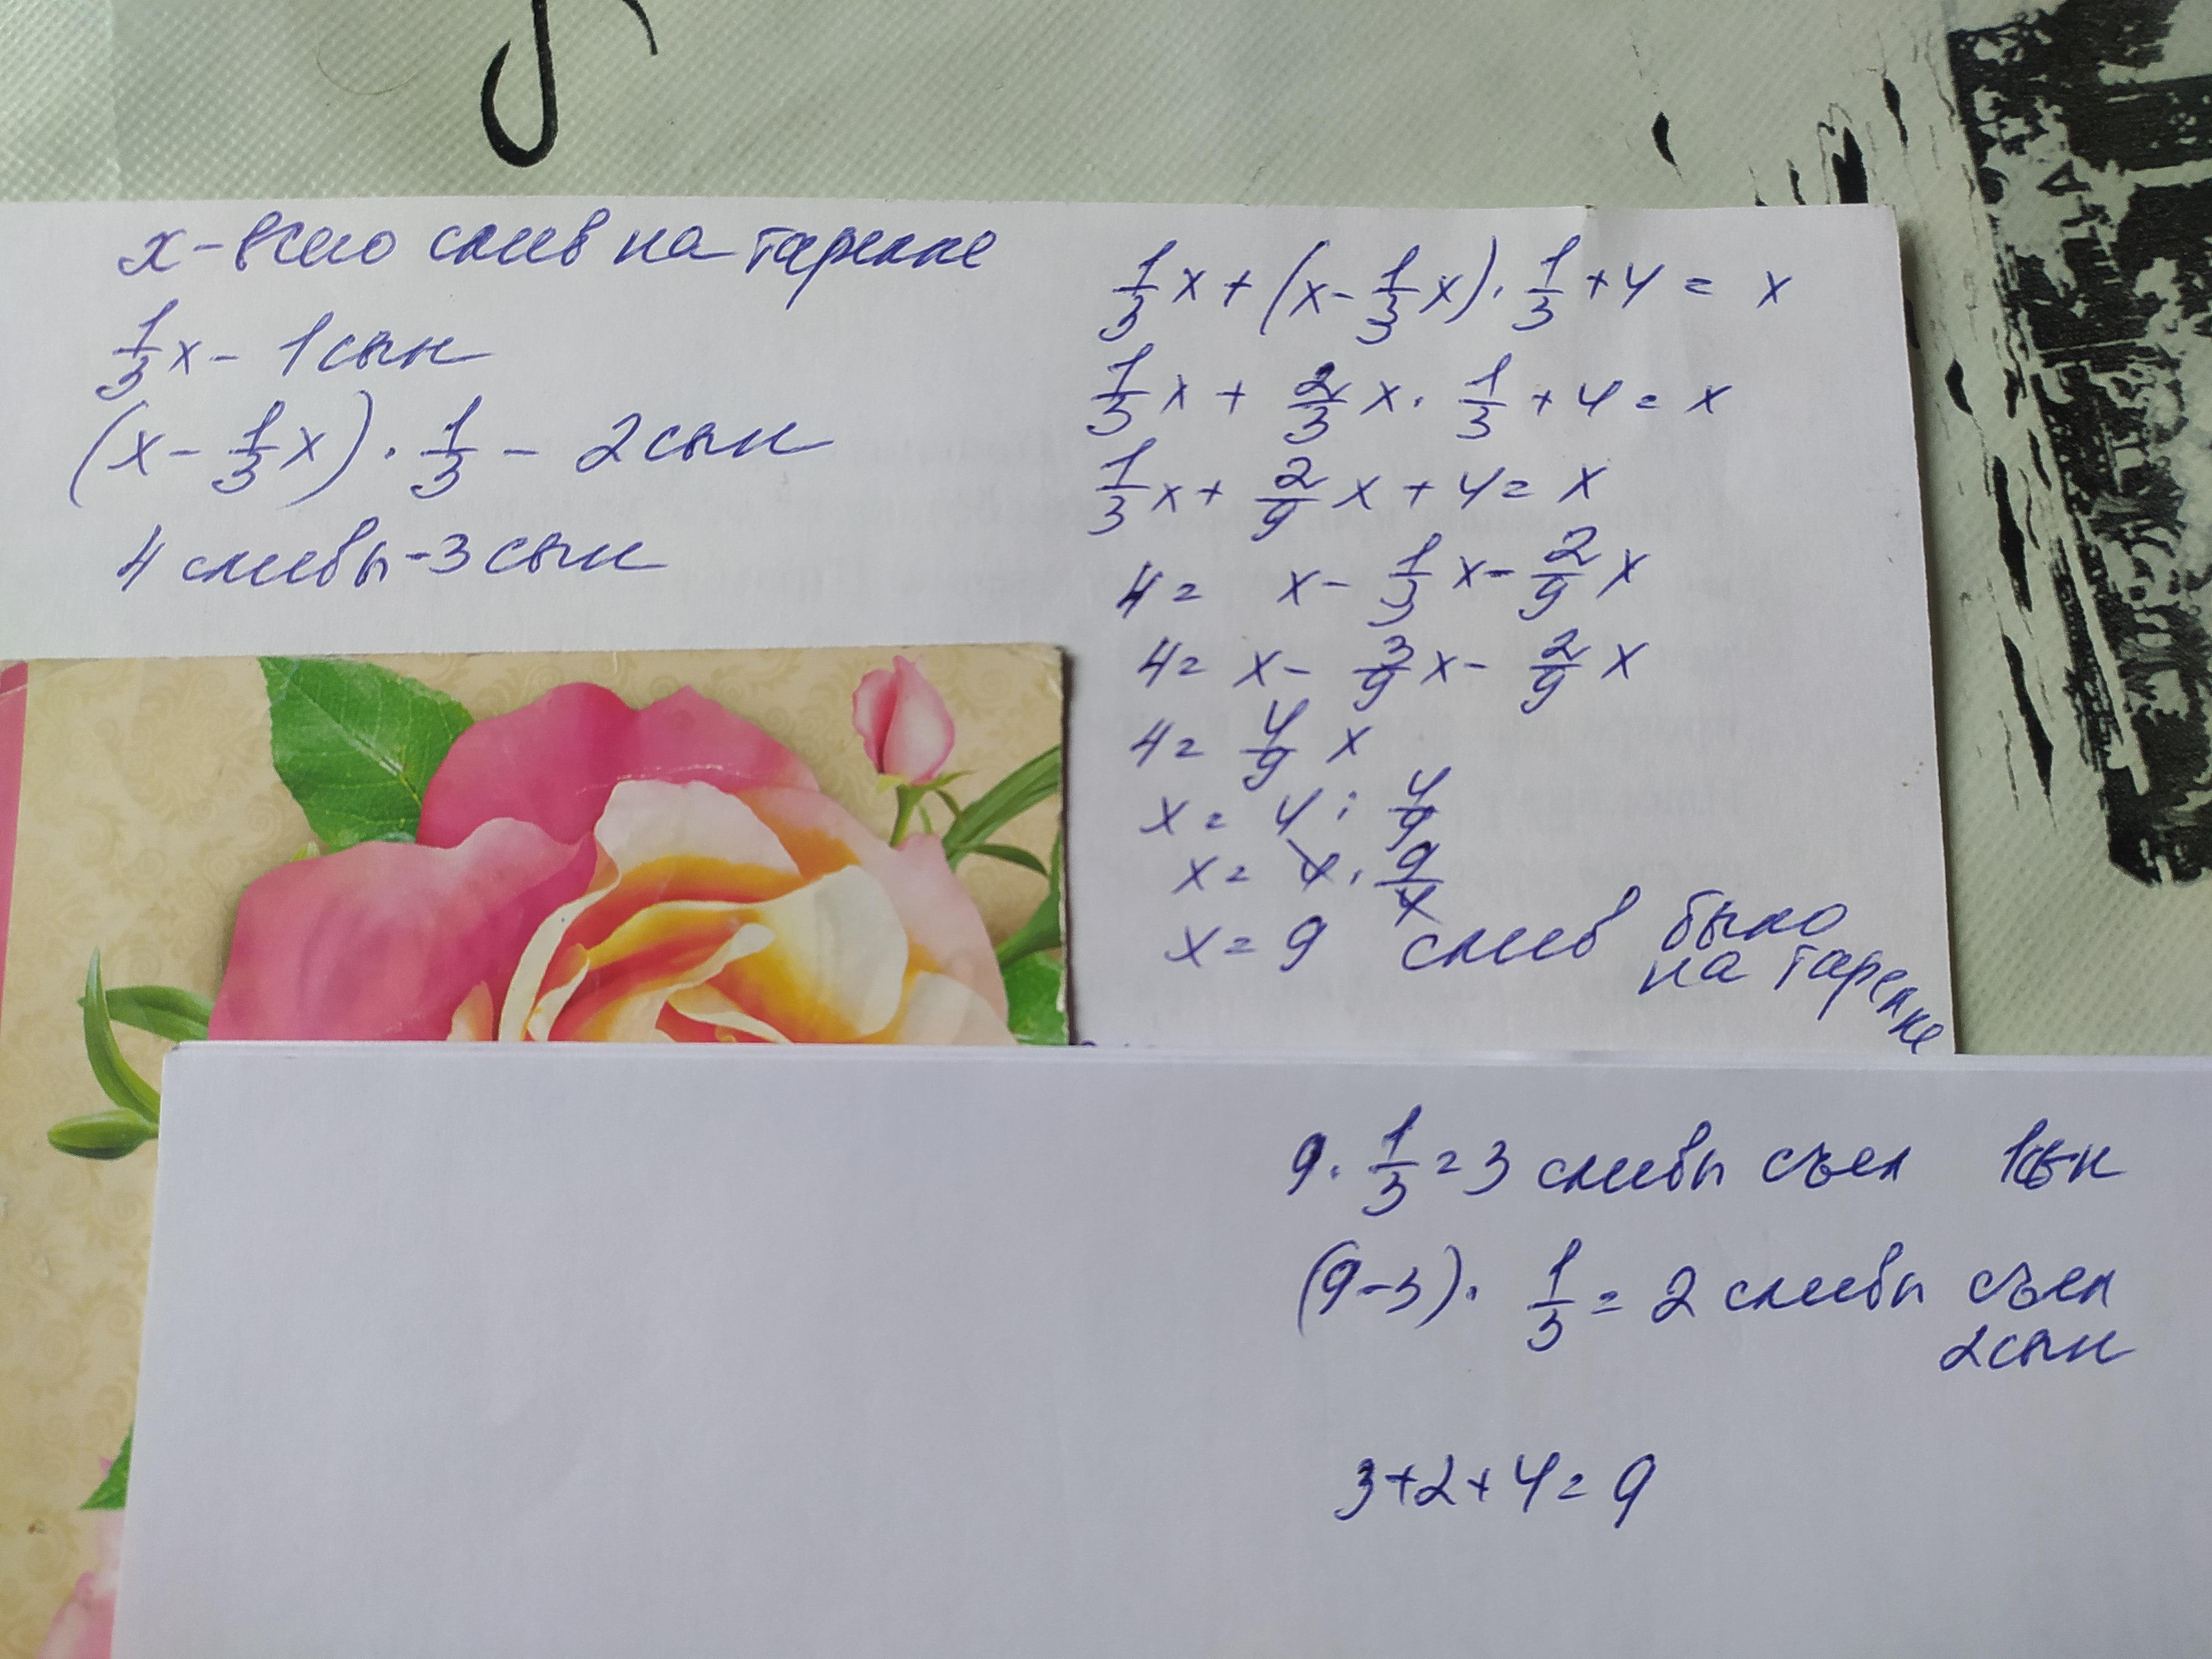 x - всего слив на тарелке
1/3 x - 1 сын
(x - 1/3 x) · 1/3 - 2 сын
4 сливы - 3 сын
1/3 x + (x - 1/3 x) · 1/3 + 4 = x
1/3 x + 2/3 x · 1/3 + 4 = x
1/3 x + 2/9 x + 4 = x
4 = x - 1/3 x - 2/9 x
4 = x - 3/9 x - 2/9 x
4 = 4/9 x
x = 4 : 4/9
x = 4 · 9/4
x = 9 слив было
на тарелке
9 · 1/3 = 3 сливы съел 1 сын
(9-3) · 1/3 = 2 сливы съел
2 сын
3+2+4=9